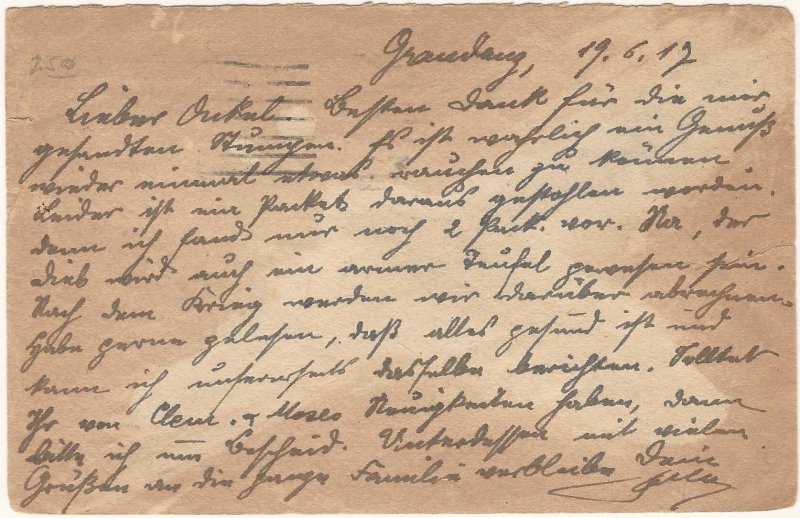 250
Graudenz, 19. 6. 17
Lieber Onkel. Besten Dank für die mir
gesandten Stumpen. Es ist wahrlich ein Genuß
wieder einmal etwas rauchen zu können
Leider ist ein Packet daraus gestohlen worden.
denn ich fand nur noch 2 Pack. vor. Na, der
Dieb wird auch ein armer Teufel gewesen sein.
Nach dem Krieg werden wir darüber abrechnen.
Habe gerne gelesen, daß alles gesund ist und
kann ich unsererseits dasselbe berichten. Solltet
Ihr von Clem. & Moses Neuigkeiten haben, dann
bitte ich um Bescheid. Unterdessen mit vielen
Grüßen an die ganze Familie verbleibe Dein